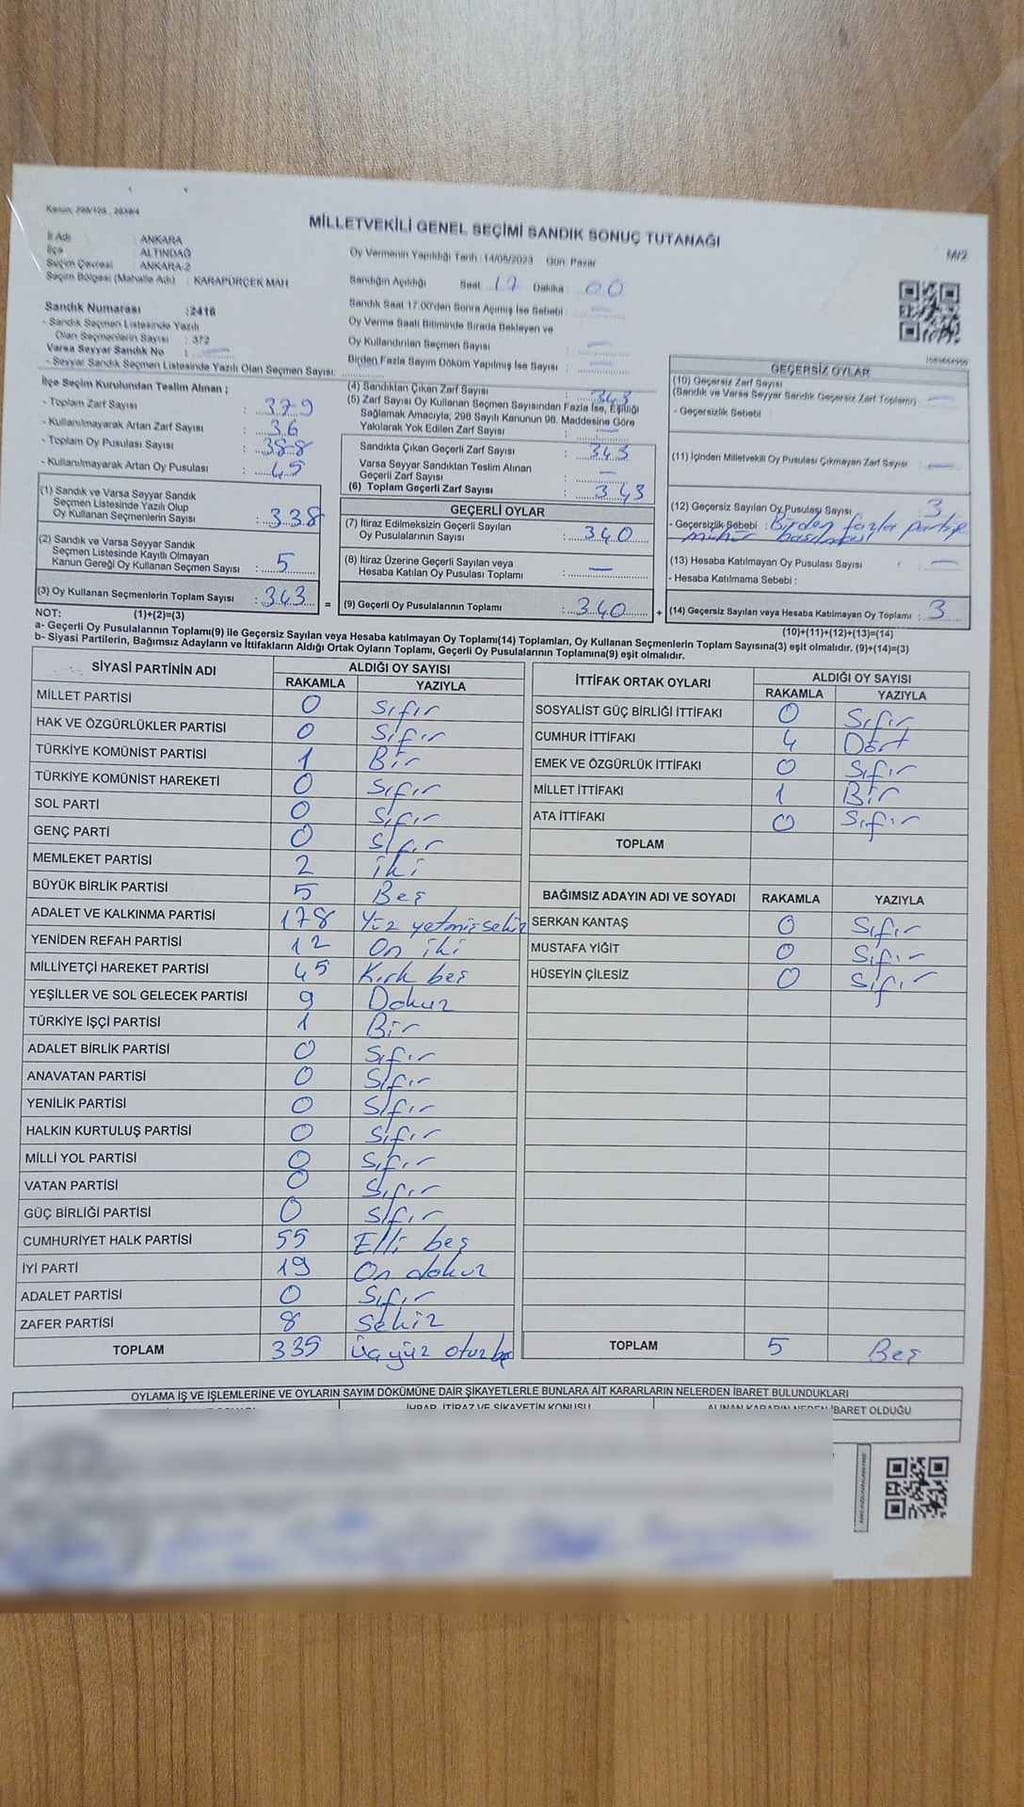 Kanun: 298/105, 2839/4
MİLLETVEKİLİ GENEL SEÇİMİ SANDIK SONUÇ TUTANAĞI
M/2
İl Adı ANKARA
İlçe ALTINDAĞ
Seçim Çevresi ANKARA-2
Seçim Bölgesi (Mahalle Adı) : KARAPÜRÇEK MAH
Sandık Numarası :2416
- Sandık Seçmen Listesinde Yazılı
Olan Seçmenlerin Sayısı : 372
Varsa Seyyar Sandık No :
- Seyyar Sandık Seçmen Listesinde Yazılı Olan Seçmen Sayısı:
Oy Vermenin Yapıldığı Tarih :14/05/2023 Gün: Pazar
Sandığın Açıldığı Saat 17 Dakika 00
Sandık Saat 17.00'den Sonra Açılmış İse Sebebi :
Oy Verme Saati Bitiminde Sırada Bekleyen ve
Oy Kullandırılan Seçmen Sayısı :
Birden Fazla Sayım Döküm Yapılmış İse Sayısı :
İlçe Seçim Kurulundan Teslim Alınan ;
- Toplam Zarf Sayısı : 379
- Kullanılmayarak Artan Zarf Sayısı : 36
- Toplam Oy Pusulası Sayısı : 388
- Kullanılmayarak Artan Oy Pusulası : 45
(1) Sandık ve Varsa Seyyar Sandık
Seçmen Listesinde Yazılı Olup
Oy Kullanan Seçmenlerin Sayısı : 338
(2) Sandık ve Varsa Seyyar Sandık
Seçmen Listesinde Kayıtlı Olmayan
Kanun Gereği Oy Kullanan Seçmen Sayısı : 5
(3) Oy Kullanan Seçmenlerin Toplam Sayısı : 343 =
(4) Sandıktan Çıkan Zarf Sayısı : 343
(5) Zarf Sayısı Oy Kullanan Seçmen Sayısından Fazla İse, Eşitliği
Sağlamak Amacıyla; 298 Sayılı Kanunun 98. Maddesine Göre
Yakılarak Yok Edilen Zarf Sayısı : —
Sandıkta Çıkan Geçerli Zarf Sayısı : 343
Varsa Seyyar Sandıktan Teslim Alınan
Geçerli Zarf Sayısı : —
(6) Toplam Geçerli Zarf Sayısı : 343
GEÇERLİ OYLAR
(7) İtiraz Edilmeksizin Geçerli Sayılan
Oy Pusulalarının Sayısı : 340
(8) İtiraz Üzerine Geçerli Sayılan veya
Hesaba Katılan Oy Pusulası Toplamı : —
(9) Geçerli Oy Pusulalarının Toplamı : 340 +
GEÇERSİZ OYLAR
(10) Geçersiz Zarf Sayısı
(Sandık ve Varsa Seyyar Sandık Geçersiz Zarf Toplamı) : —
- Geçersizlik Sebebi
(11) İçinden Milletvekili Oy Pusulası Çıkmayan Zarf Sayısı : —
(12) Geçersiz Sayılan Oy Pusulası Sayısı : 3
- Geçersizlik Sebebi : Birden fazla partiye
mühür basılması
(13) Hesaba Katılmayan Oy Pusulası Sayısı : —
- Hesaba Katılmama Sebebi :
(14) Geçersiz Sayılan veya Hesaba Katılmayan Oy Toplamı : 3
NOT: (1)+(2)=(3)
(10)+(11)+(12)+(13)=(14)
a- Geçerli Oy Pusulalarının Toplamı(9) ile Geçersiz Sayılan veya Hesaba katılmayan Oy Toplamı(14) Toplamları, Oy Kullanan Seçmenlerin Toplam Sayısına(3) eşit olmalıdır. (9)+(14)=(3)
b- Siyasi Partilerin, Bağımsız Adayların ve İttifakların Aldığı Ortak Oyların Toplamı, Geçerli Oy Pusulalarının Toplamına(9) eşit olmalıdır.
SİYASİ PARTİNİN ADI ALDIĞI OY SAYISI
RAKAMLA YAZIYLA
MİLLET PARTİSİ 0 Sıfır
HAK VE ÖZGÜRLÜKLER PARTİSİ 0 Sıfır
TÜRKİYE KOMÜNİST PARTİSİ 1 Bir
TÜRKİYE KOMÜNİST HAREKETİ 0 Sıfır
SOL PARTİ 0 Sıfır
GENÇ PARTİ 0 Sıfır
MEMLEKET PARTİSİ 2 iki
BÜYÜK BİRLİK PARTİSİ 5 Beş
ADALET VE KALKINMA PARTİSİ 178 Yüz yetmiş sekiz
YENİDEN REFAH PARTİSİ 12 On iki
MİLLİYETÇİ HAREKET PARTİSİ 45 Kırk beş
YEŞİLLER VE SOL GELECEK PARTİSİ 9 Dokuz
TÜRKİYE İŞÇİ PARTİSİ 1 Bir
ADALET BİRLİK PARTİSİ 0 Sıfır
ANAVATAN PARTİSİ 0 Sıfır
YENİLİK PARTİSİ 0 Sıfır
HALKIN KURTULUŞ PARTİSİ 0 Sıfır
MİLLİ YOL PARTİSİ 0 Sıfır
VATAN PARTİSİ 0 Sıfır
GÜÇ BİRLİĞİ PARTİSİ 0 Sıfır
CUMHURİYET HALK PARTİSİ 55 Elli beş
İYİ PARTİ 19 On dokuz
ADALET PARTİSİ 0 Sıfır
ZAFER PARTİSİ 8 Sekiz
TOPLAM 335 Üçyüz otuz beş
İTTİFAK ORTAK OYLARI ALDIĞI OY SAYISI
RAKAMLA YAZIYLA
SOSYALİST GÜÇ BİRLİĞİ İTTİFAKI 0 Sıfır
CUMHUR İTTİFAKI 4 Dört
EMEK VE ÖZGÜRLÜK İTTİFAKI 0 Sıfır
MİLLET İTTİFAKI 1 Bir
ATA İTTİFAKI 0 Sıfır
TOPLAM
BAĞIMSIZ ADAYIN ADI VE SOYADI RAKAMLA YAZIYLA
SERKAN KANTAŞ 0 Sıfır
MUSTAFA YİĞİT 0 Sıfır
HÜSEYİN ÇİLESİZ 0 Sıfır
TOPLAM 5 Beş
OYLAMA İŞ VE İŞLEMLERİNE VE OYLARIN SAYIM DÖKÜMÜNE DAİR ŞİKAYETLERLE BUNLARA AİT KARARLARIN NELERDEN İBARET BULUNDUKLARI
İHBAR, İTİRAZ VE ŞİKAYETİN KONUSU ALINAN KARARIN NEDEN İBARET OLDUĞU